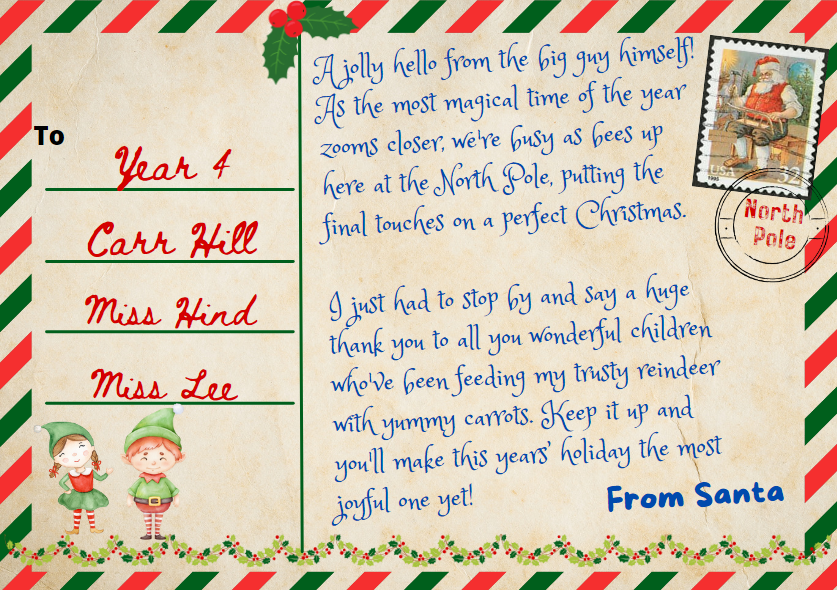 To
Year 4
Carr Hill
Miss Hind
Miss Lee
A jolly hello from the big guy himself!
As the most magical time of the year
zooms closer, we're busy as bees up
here at the North Pole, putting the
final touches on a perfect Christmas.
I just had to stop by and say a huge
thank you to all you wonderful children
who've been feeding my trusty reindeer
with yummy carrots. Keep it up and
you'll make this years' holiday the most
joyful one yet!
From Santa
USA
1995
32
North
Pole